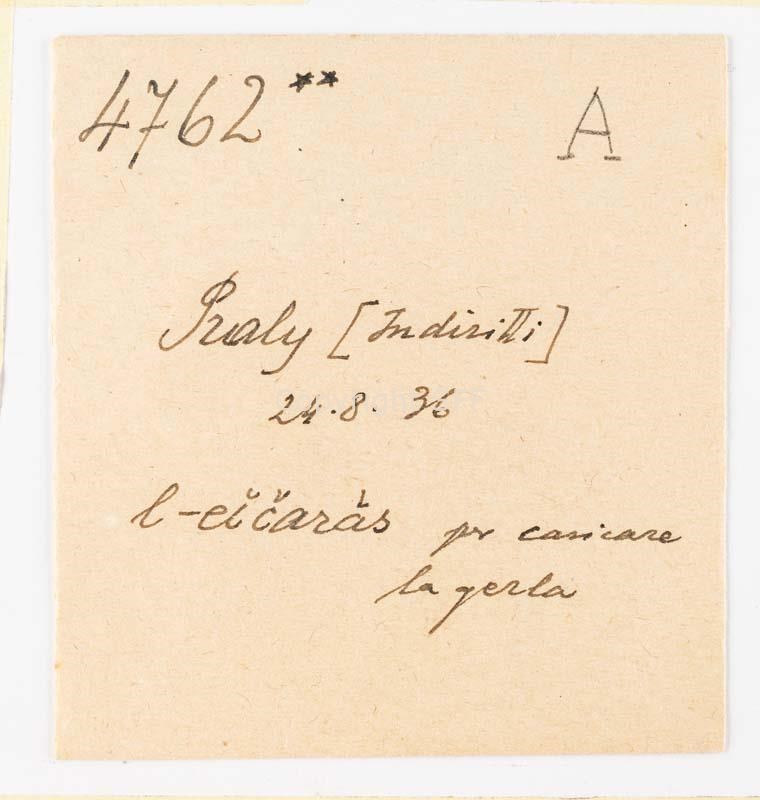 4762 ** A
Praly [Indiritti]
24.8.36
l-eič̌aràs pr caricare
la gerla